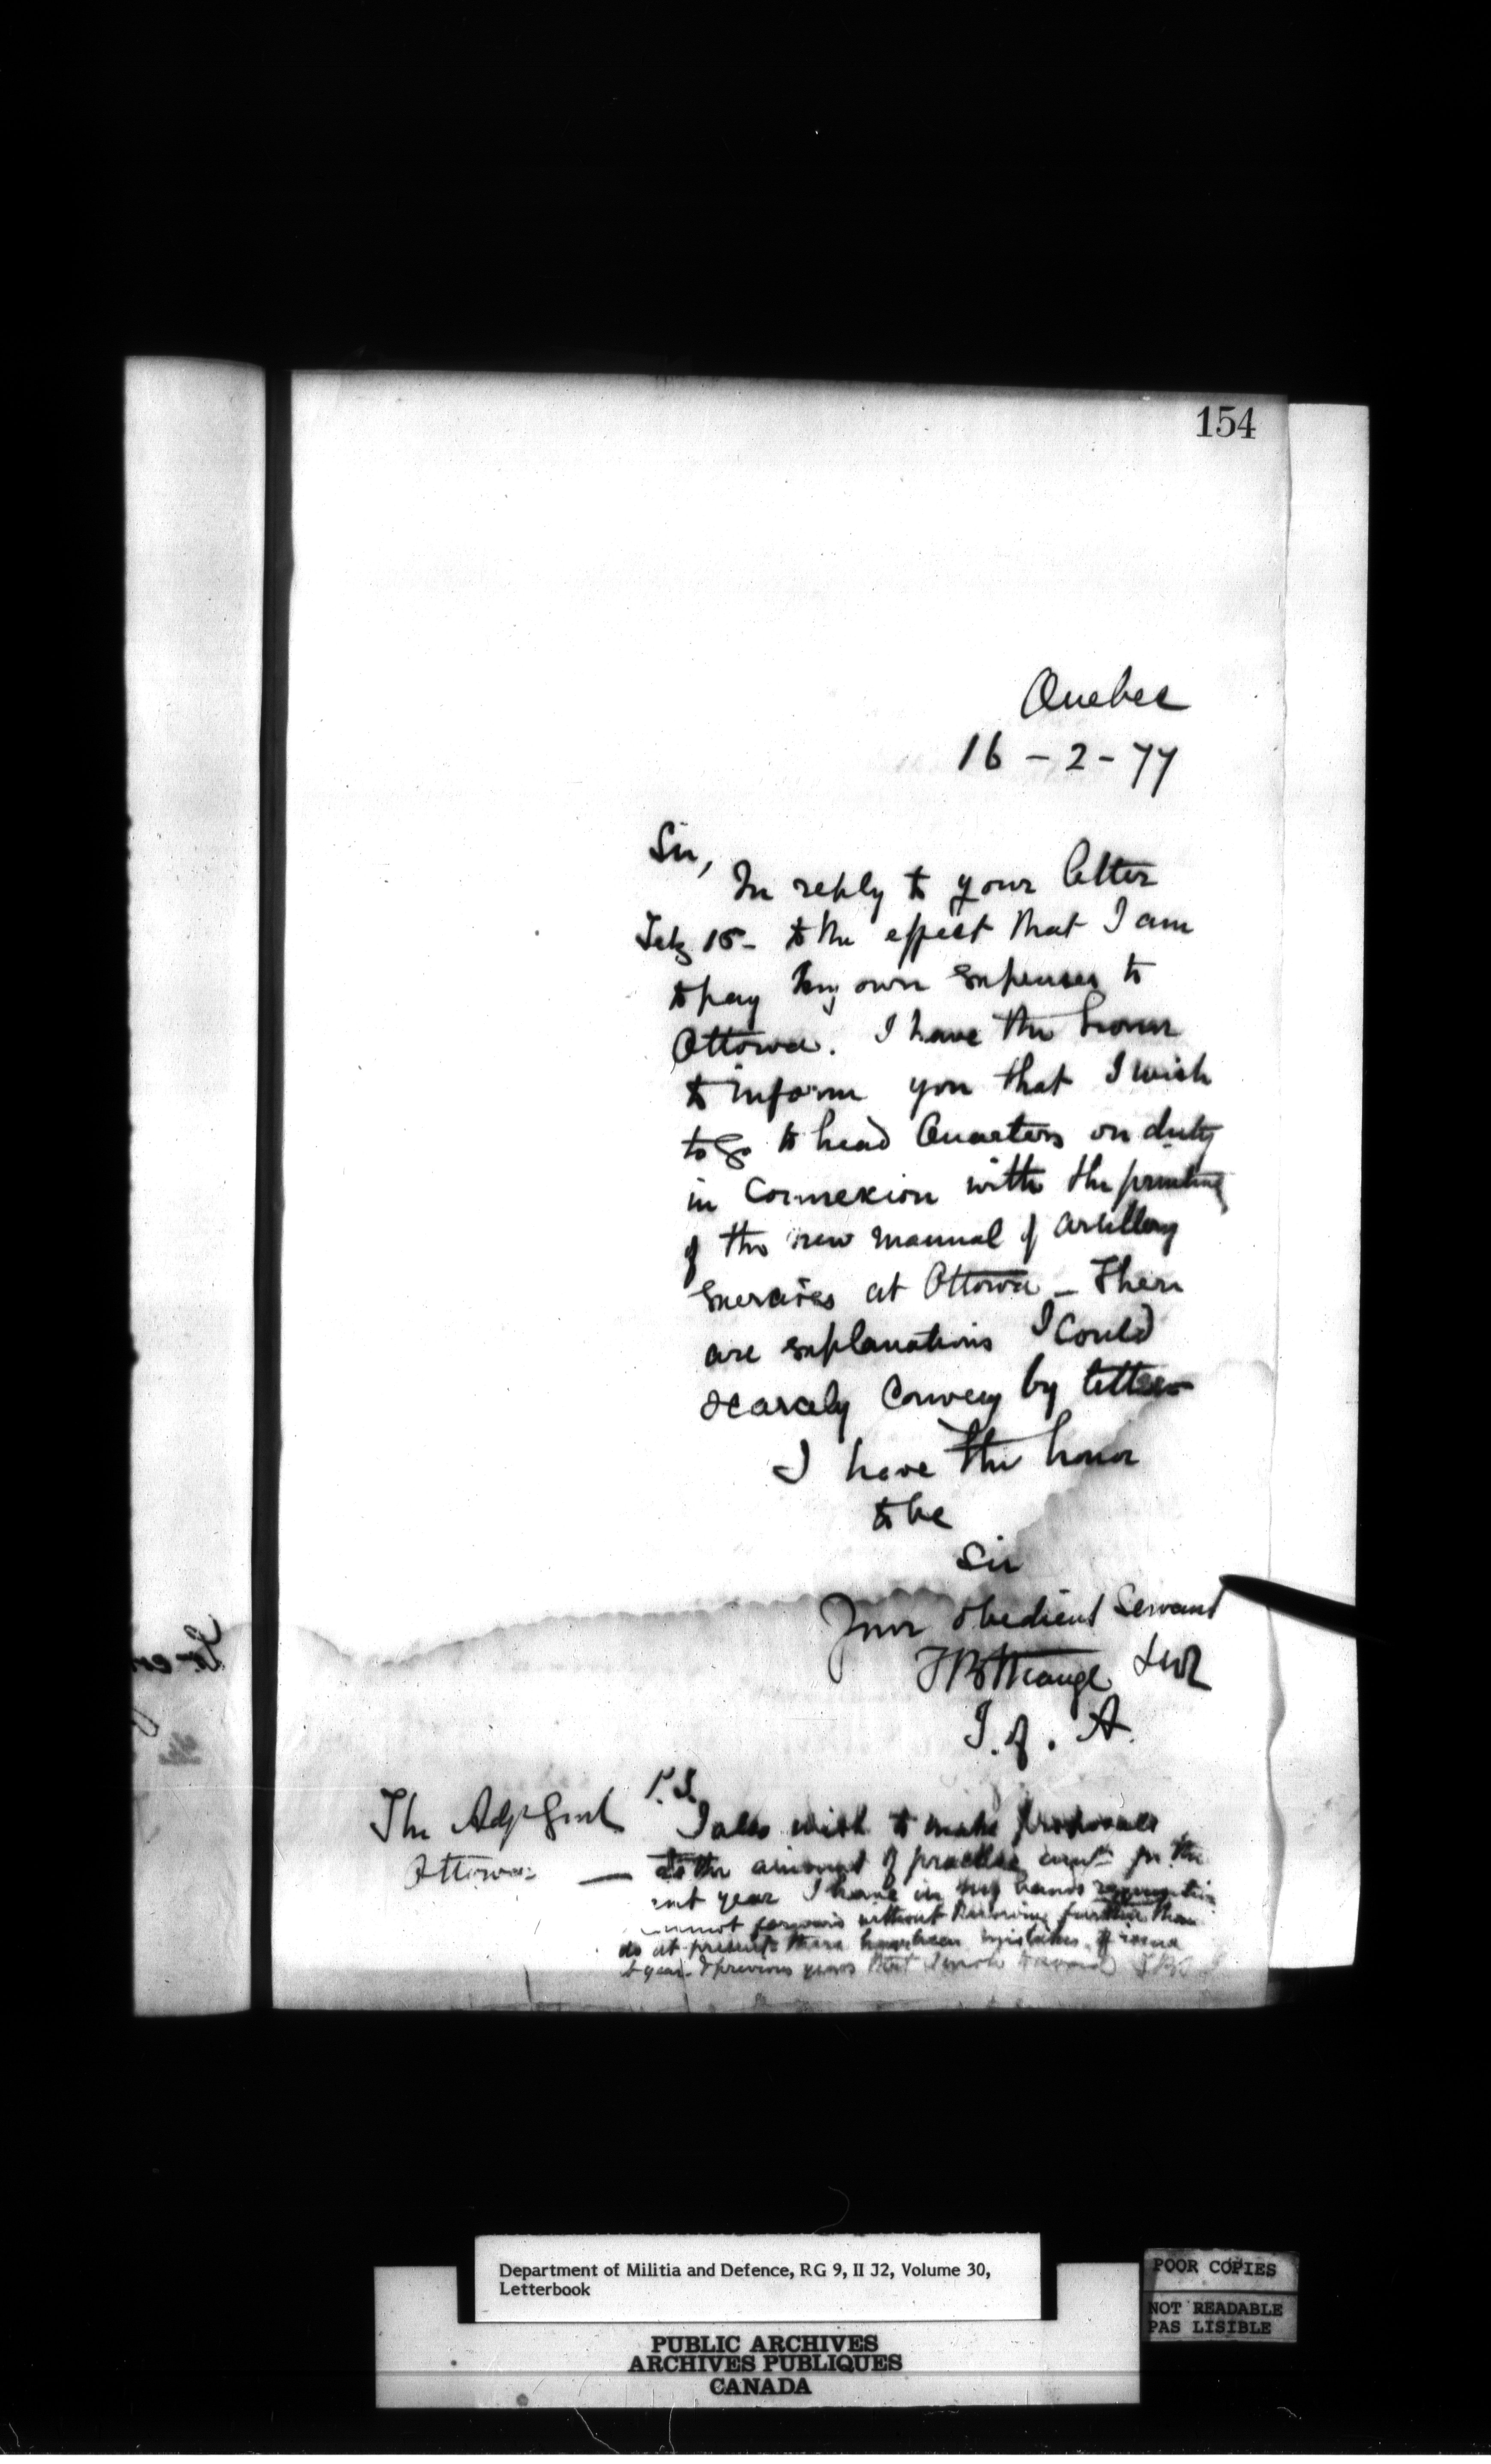 154
Quebec
16 - 2 - 77
Sir,
In reply to your letter
Feby 15 - to the effect that I am
to pay my own expenses to
Ottowa. I have the honour
to inform you that I wish
to go to head Quarters on duty
in Connexion with the printing
of the new manual of artillery
Exercises at Ottowa - There
are explanations I could
scarcely Convey by letter
I have the honor
to be
Sir
Your obedient Servant
TBStrange Lt Col
I. of. A.
The Adjt Genl
Ottowa
P.S.
I also wish to make proposals
as to the amount of practice for the
year I have in my hands
cannot forward without knowing further than
do at present there have been mistakes
year & previous years that I wish to avoid TBS
Department of Militia and Defence, RG 9, II J2, Volume 30,
Letterbook
PUBLIC ARCHIVES
ARCHIVES PUBLIQUES
CANADA
POOR COPIES
NOT READABLE
PAS LISIBLE